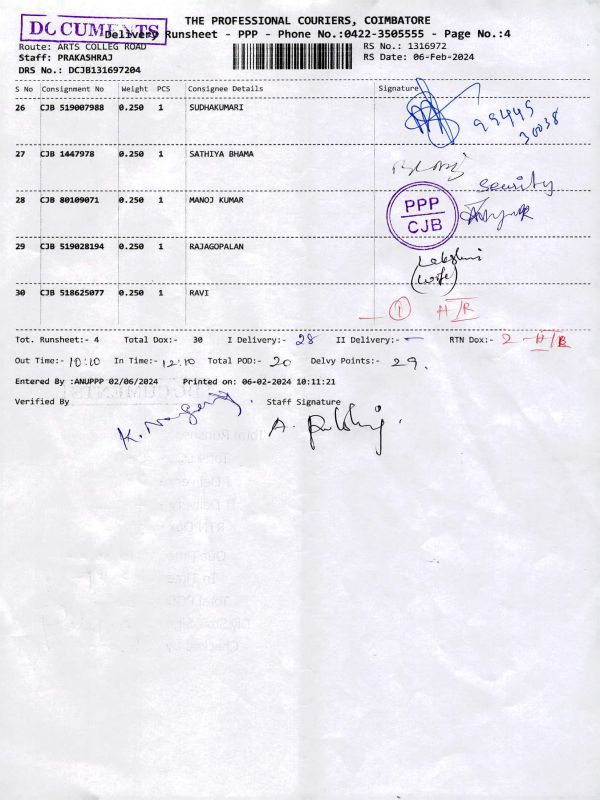 THE PROFESSIONAL COURIERS, COIMBATORE
DOCUMENTS
Delivery Runsheet - PPP - Phone No.:0422-3505555 - Page No.:4
Route: ARTS COLLEG ROAD
RS No.: 1316972
Staff: PRAKASHRAJ
RS Date: 06-Feb-2024
DRS No.: DCJB131697204
S No Consignment No Weight PCS Consignee Details Signature
26 CJB 519007988 0.250 1 SUDHAKUMARI
99445
30038
27 CJB 1447978 0.250 1 SATHIYA BHAMA
Security
28 CJB 80109071 0.250 1 MANOJ KUMAR
PPP
CJB
29 CJB 519028194 0.250 1 RAJAGOPALAN
Lakshmi
(wife)
30 CJB 518625077 0.250 1 RAVI
1 H/R
Tot. Runsheet:- 4 Total Dox:- 30 I Delivery:- 28 II Delivery:- - RTN Dox:- 2 - H/R
Out Time:- 10:10 In Time:- 12:10 Total POD:- 20 Delvy Points:- 29.
Entered By :ANUPPP 02/06/2024 Printed on: 06-02-2024 10:11:21
Verified By Staff Signature